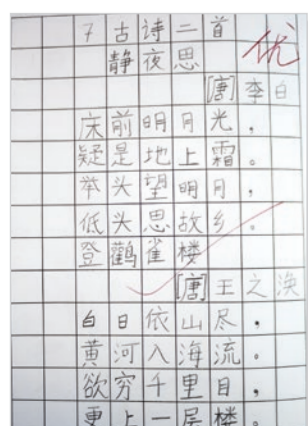 7 古诗二首
优
静夜思
[唐] 李白
床前明月光，
疑是地上霜。
举头望明月，
低头思故乡。
登鹳雀楼
[唐] 王之涣
白日依山尽，
黄河入海流。
欲穷千里目，
更上一层楼。